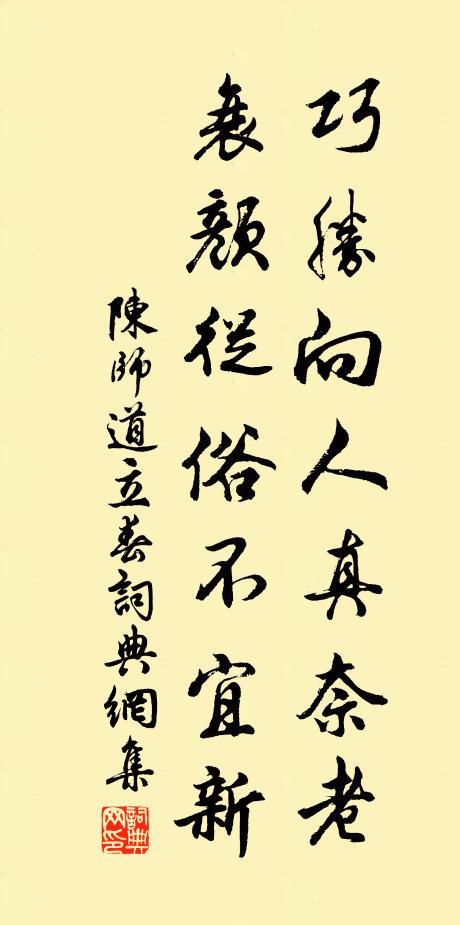 巧勝向人真奈老
衰顏從俗不宜新
陳師道立春詞典網集
詞典網印